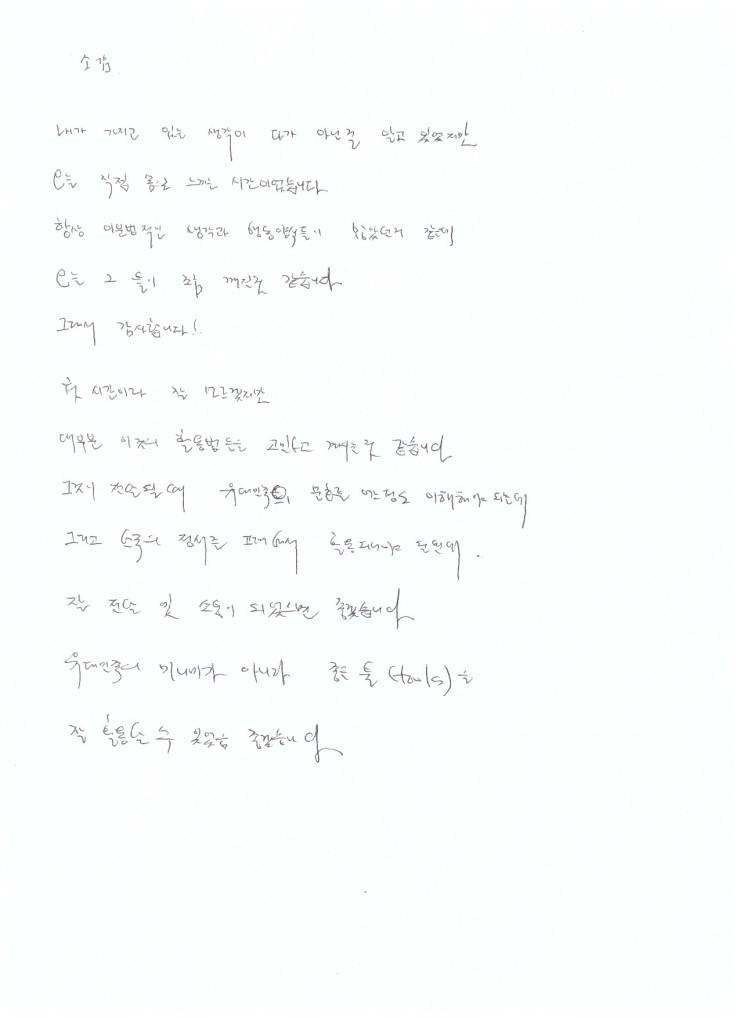 소감
내가 가지고 있는 생각이 다가 아닌걸 알고 있었지만
오늘 직접 몸으로 느끼는 시간이었습니다
항상 이분법적인 생각과 행동양식들이 많았던거 같은데
오늘 그 틀이 조금 깨진것 같습니다
그래서 감사합니다!
첫 시간이라 잘 모르겠지만
대부분 이것의 활용법 등을 고민하고 계시는 것 같습니다
그저 전달될때 유대민족의 문화를 어느정도 이해해야 되는데
그리고 한국의 정서를 고려해서 활용되어야 할텐데.
잘 전달 및 소통이 되었으면 좋겠습니다
유대민족의 미니미가 아니라 좋은 툴(tools)을
잘 활용할 수 있었음 좋겠습니다